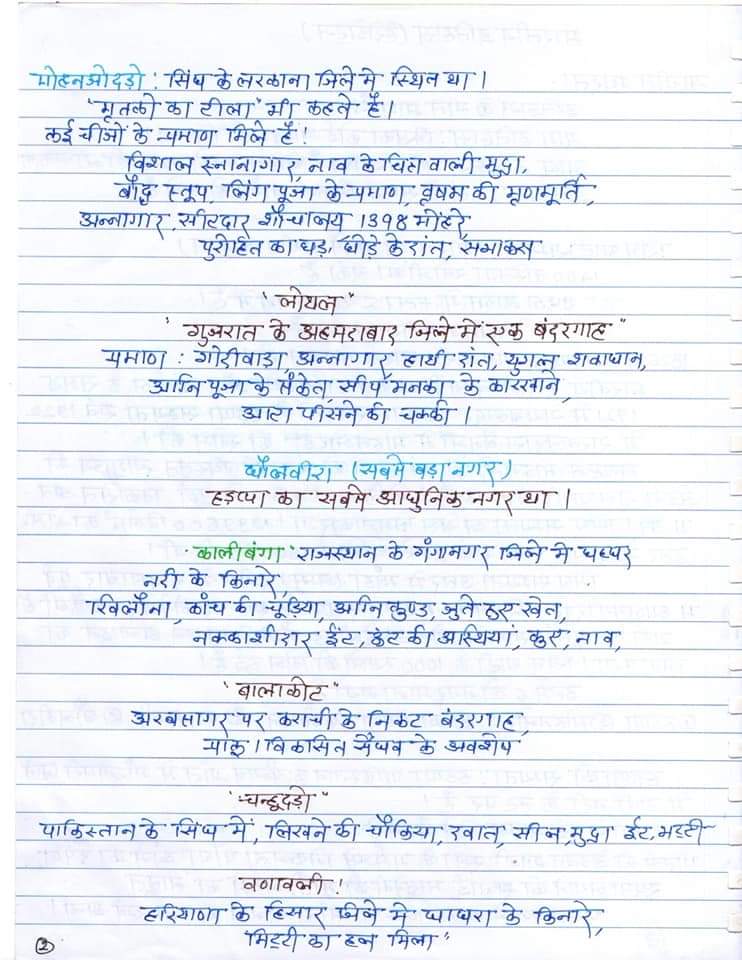 मोहनजोदड़ो : सिंध के लरकाना जिले मे स्थित था।
"मृतको का टीला" भी कहते है।
कई चीजों के प्रमाण मिले है!
विशाल स्नानागार, नाव के चित्र वाली मुद्रा,
बौद्ध स्तूप, लिंग पूजा के प्रमाण, वृषभ की मृणमूर्ति,
अन्नागार, सीटदार शौचालय 1398 मोहरे,
पुरोहित का धड़, घोड़े के दांत,
"लोथल"
"गुजरात के अहमदाबाद जिले में एक बंदरगाह"
प्रमाण : गोदीवाड़ा, अन्नागार, हाथी दांत, युगल शवाधान,
अग्नि पूजा के संकेत, सीप, मनका के कारखाने,
आटा पीसने की चक्की।
धौलवीरा (सबसे बड़ा नगर)
हड़प्पा का सबसे आधुनिक नगर था।
कालीबंगा राजस्थान के गंगानगर जिले मे घग्घर
नदी के किनारे,
खिलौना, कांच की चूड़िया, अग्नि कुण्ड, जुते हुए खेत,
नक्काशीदार ईंट, ऊंट की अस्थियां, कुएं, नाव,
"बालाकोट"
अरबसागर पर कराची के निकट बंदरगाह,
प्राक्। विकसित सैंधव के अवशेष
"चन्हुदड़ो"
पाकिस्तान के सिंध में, लिखने की चौकिया, दवात, सील, मुद्रा ईंट, भट्टी
वणावली!
हरियाणा के हिसार जिले मे घाघरा के किनारे,
मिट्टी का हल मिला"
2